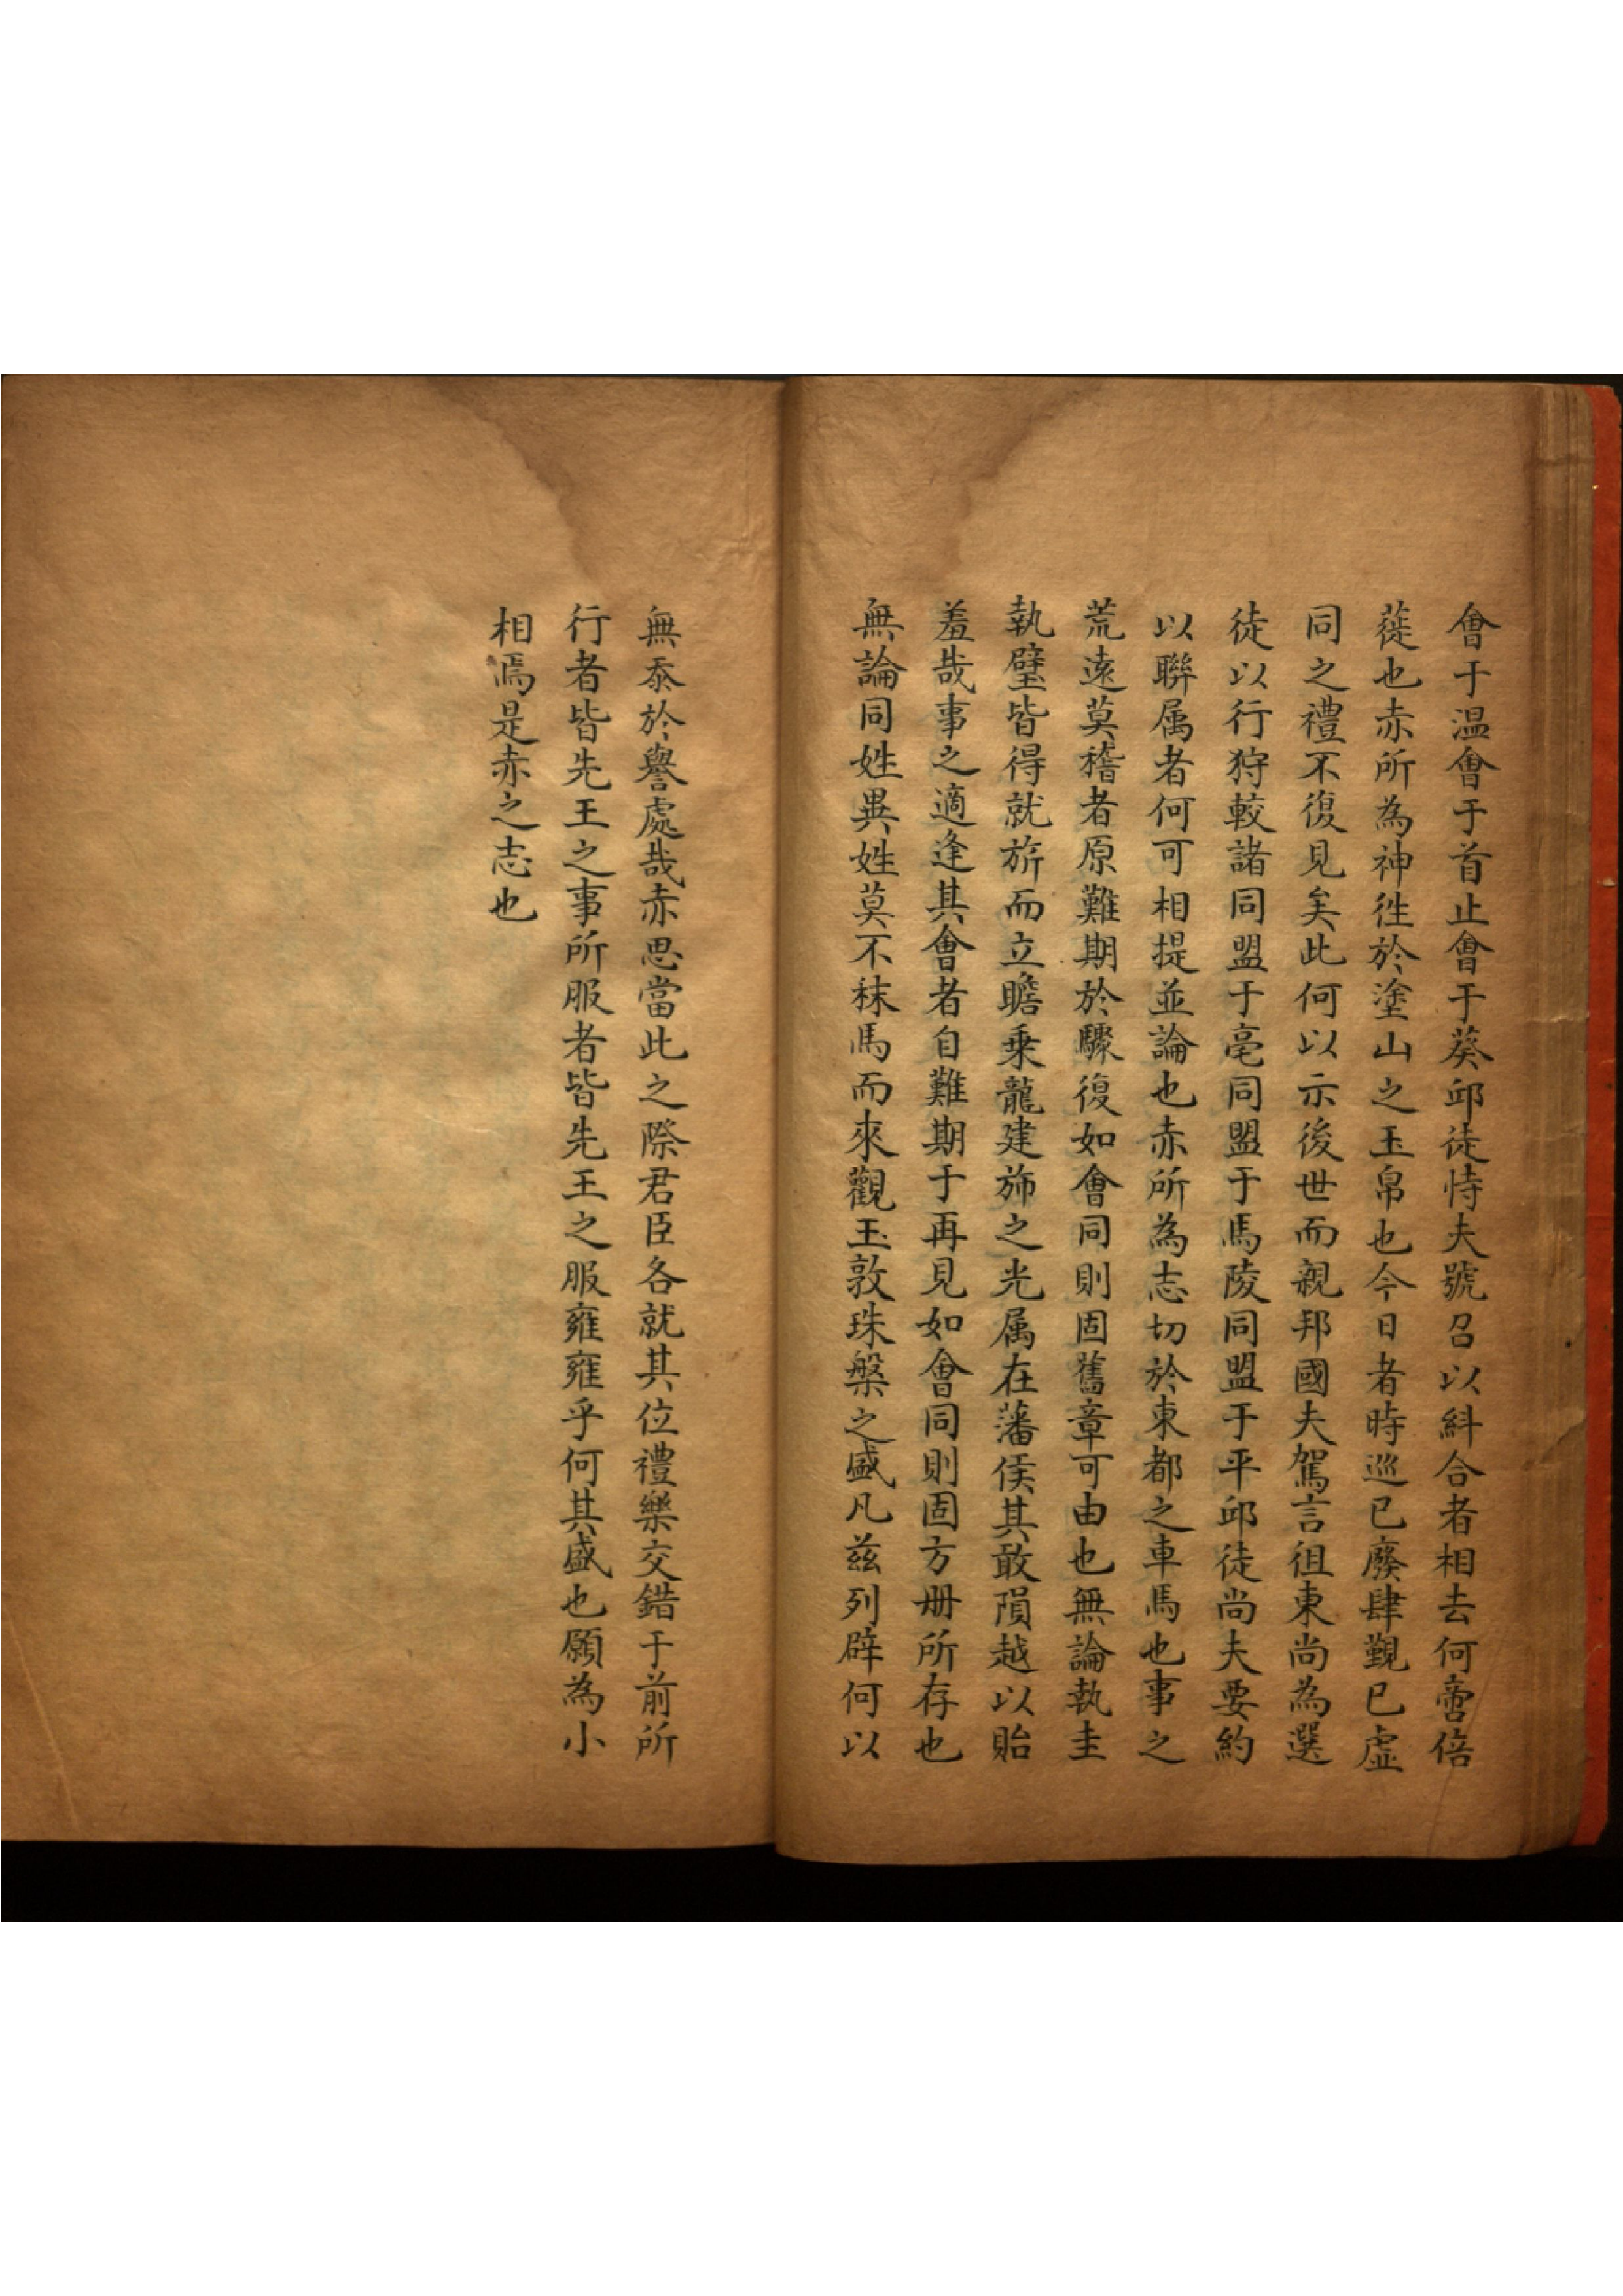 會于温會于首止會于葵邱徒恃夫號召以糾合者相去何啻倍
蓰也赤所為神徃於塗山之玉帛也今日者時巡已廢肆覲已虛
同之禮不復見矣此何以示後世而親邦國夫駕言徂東尚為選
徒以行狩較諸同盟于亳同盟于馬陵同盟于平邱徒尚夫要約
以聯属者何可相提並論也赤所為志切於東都之車馬也事之
荒遠莫稽者原難期於驟復如會同則固舊章可由也無論執圭
執璧皆得就旂而立瞻乗龍建斾之光属在藩侯其敢隕越以貽
羞哉事之適逢其會者自難期于再見如會同則固方册所存也
無論同姓異姓莫不秣馬而來觀玉敦珠槃之盛凡兹列辟何以
無忝於譽處哉赤思當此之際君臣各就其位禮樂交錯于前所
行者皆先王之事所服者皆先王之服雍雍乎何其盛也願為小
相焉是赤之志也